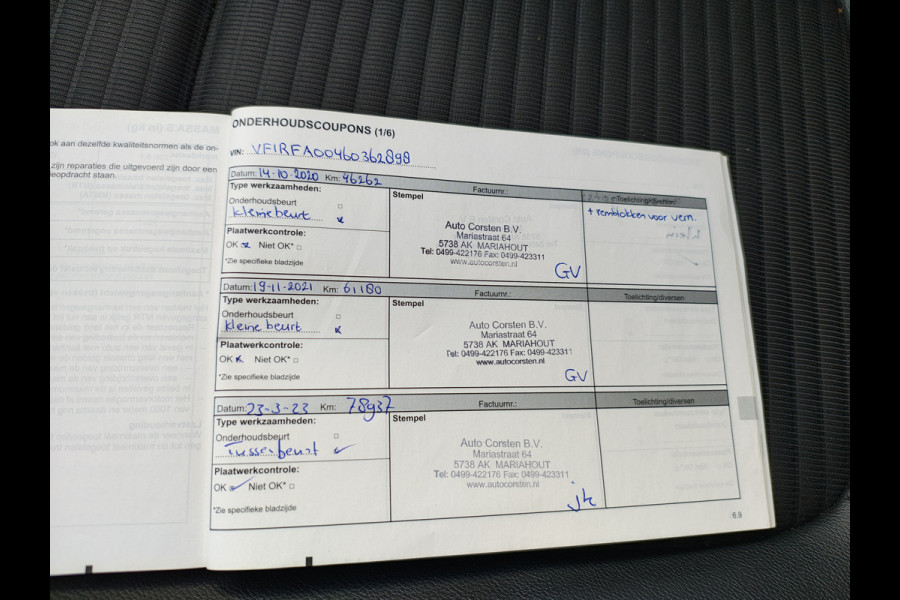 ok aan dezelfde kwaliteitsnormen als de on-
zijn reparaties die uitgevoerd zijn door een
ONDERHOUDSCOUPONS (1/6)
VIN: VF1RFA00460362898
Datum: 14-10-2020 Km: 46262
Factuurnr.:
Type werkzaamheden:
Stempel
Onderhoudsbeurt
kleine beurt
+ remblokken voor vern.
Plaatwerkcontrole:
OK Niet OK*
*Zie specifieke bladzijde
Auto Corsten B.V.
Mariastraat 64
5738 AK MARIAHOUT
Tel: 0499-422176 Fax: 0499-423311
www.autocorsten.nl
GV
Datum: 19-11-2021 Km: 61180
Factuurnr.:
Toelichting/diversen
Type werkzaamheden:
Stempel
Onderhoudsbeurt
kleine beurt
Plaatwerkcontrole:
OK Niet OK*
*Zie specifieke bladzijde
Auto Corsten B.V.
Mariastraat 64
5738 AK MARIAHOUT
Tel: 0499-422176 Fax: 0499-423311
www.autocorsten.nl
GV
Datum: 23-3-23 Km: 78937
Factuurnr.:
Toelichting/diversen
Type werkzaamheden:
Stempel
Onderhoudsbeurt
Tussenbeurt
Plaatwerkcontrole:
OK Niet OK*
*Zie specifieke bladzijde
Auto Corsten B.V.
Mariastraat 64
5738 AK MARIAHOUT
Tel: 0499-422176 Fax: 0499-423311
www.autocorsten.nl
6.9